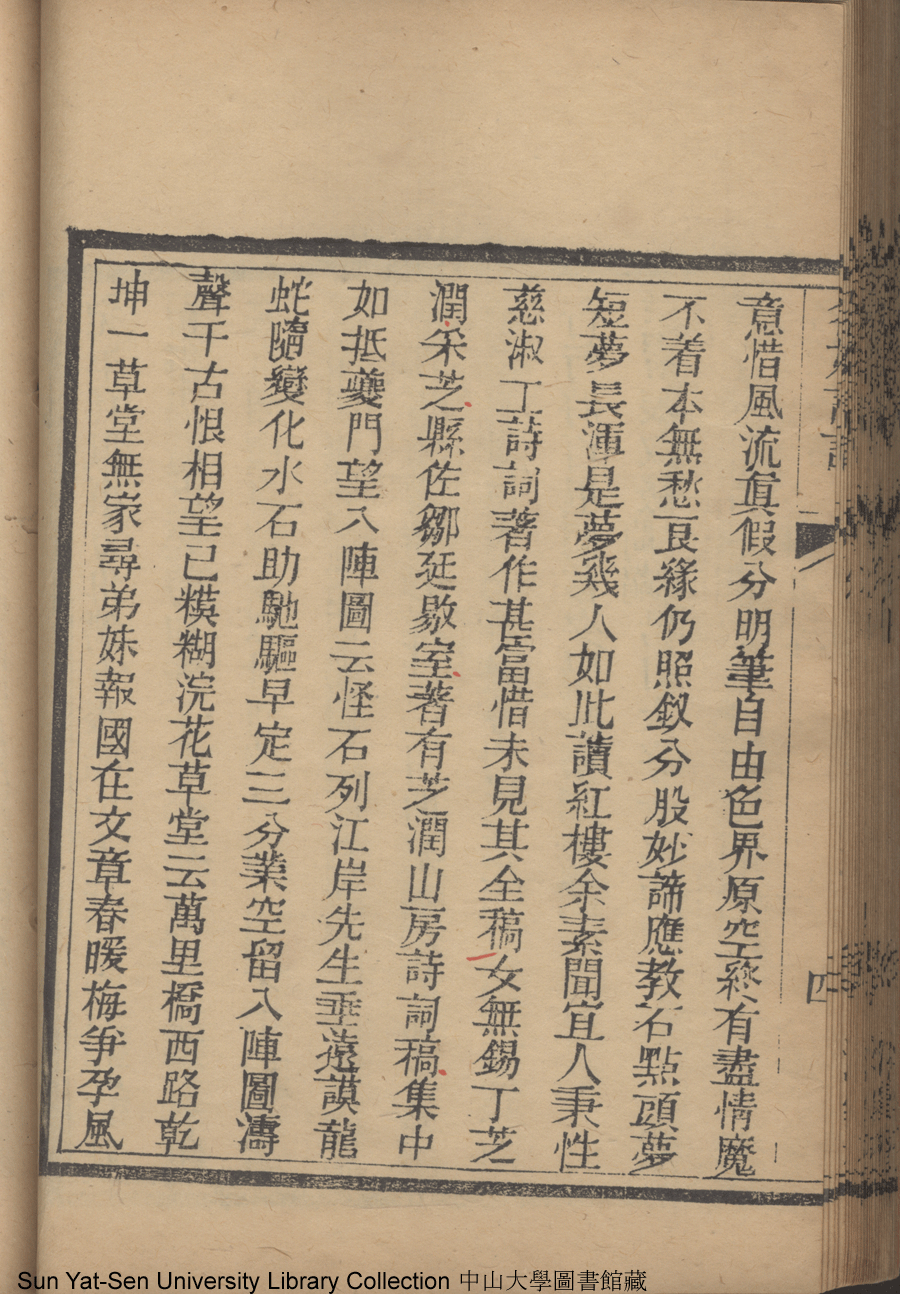 意惜風流眞假分明筆自由色界原空終有盡情魔
不着本無愁良緣仍照釵分股妙諦應教石點頭夢
短夢長渾是夢幾人如此讀紅樓余素聞宜人秉性
慈淑工詩詞著作甚富惜未見其全稿女無錫丁芝
潤宋芝縣佐鄒延敭室著有芝潤山房詩詞稿集中
如抵夔門望八陣圖云怪石列江岸先生垂遠謨龍
蛇隨變化水石助馳驅早定三分業空留八陣圖濤
聲千古恨相望已糢糊浣花草堂云萬里橋西路乾
坤一草堂無家尋弟妹報國在文章春暖梅爭孕風
四
Sun Yat-Sen University Library Collection 中山大學圖書館藏